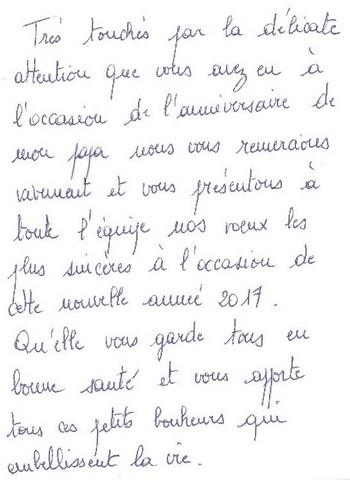 Très touchés par la délicate
attention que vous avez eu à
l'occasion de l'anniversaire de
mon papa nous vous remercions
vivement et vous présentons à
toute l'équipe nos voeux les
plus sincères à l'occasion de
cette nouvelle année 2017.
Qu'elle vous garde tous en
bonne santé et vous apporte
tous ces petits bonheurs qui
embellissent la vie.